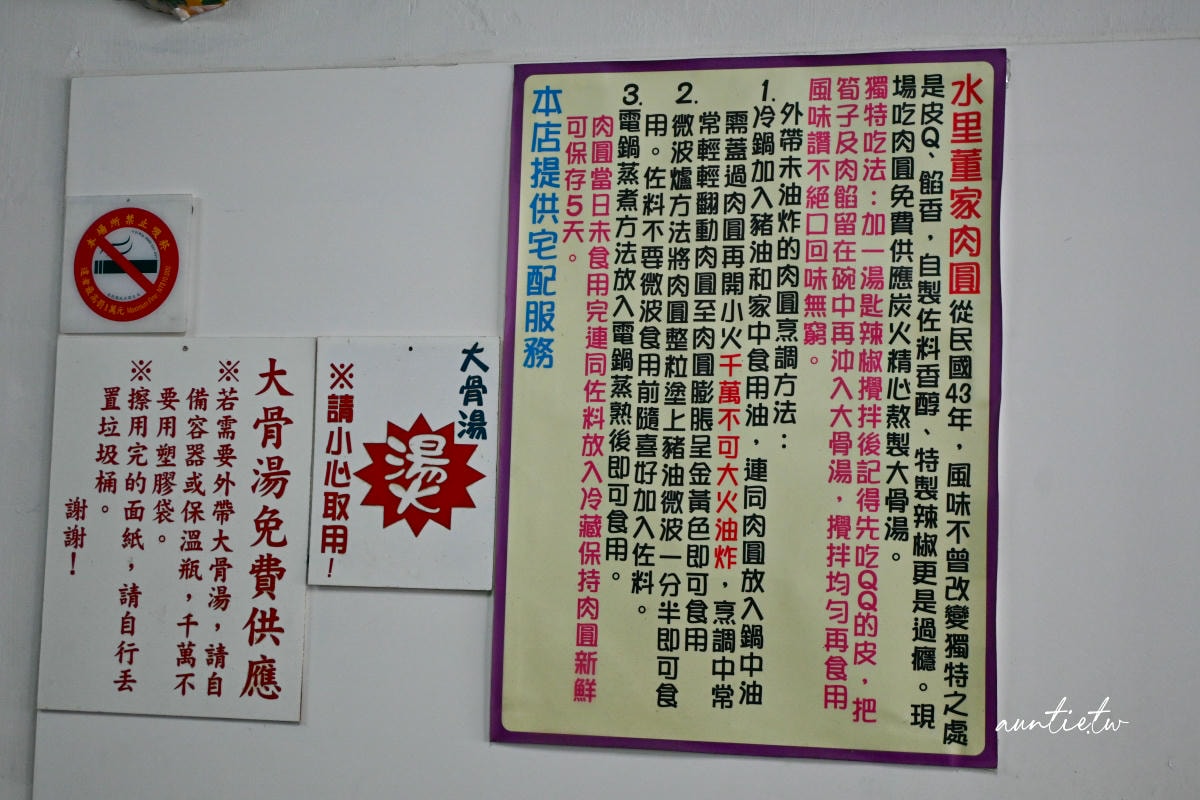 水里董家肉圓 從民國43年，風味不曾改變獨特之處
是皮Q、餡香，自製佐料香醇、特製辣椒更是過癮。現
場吃肉圓免費供應炭火精心熬製大骨湯。
獨特吃法：加一湯匙辣椒攪拌後記得先吃QQ的皮，把
筍子及肉餡留在碗中再沖入大骨湯，攪拌均勻再食用
風味讚不絕口回味無窮。
外帶未油炸的肉圓烹調方法：
1.冷鍋加入豬油和家中食用油，連同肉圓放入鍋中油
需蓋過肉圓再開小火千萬不可大火油炸，烹調中常
常輕輕翻動肉圓至肉圓膨脹呈金黃色即可食用
2.微波爐方法將肉圓整粒塗上豬油微波一分半即可食
用。佐料不要微波食用前隨喜好加入佐料。
3.電鍋蒸煮方法放入電鍋蒸熟後即可食用。
肉圓當日未食用完連同佐料放入冷藏保持肉圓新鮮
可保存5天。
本店提供宅配服務
大骨湯
燙
※請小心取用！
大骨湯免費供應
※若需要外帶大骨湯，請自
備容器或保溫瓶，千萬不
要用塑膠袋。
※擦用完的面紙，請自行丟
置垃圾桶。
謝謝！
本場所禁止吸菸
auntie.tw